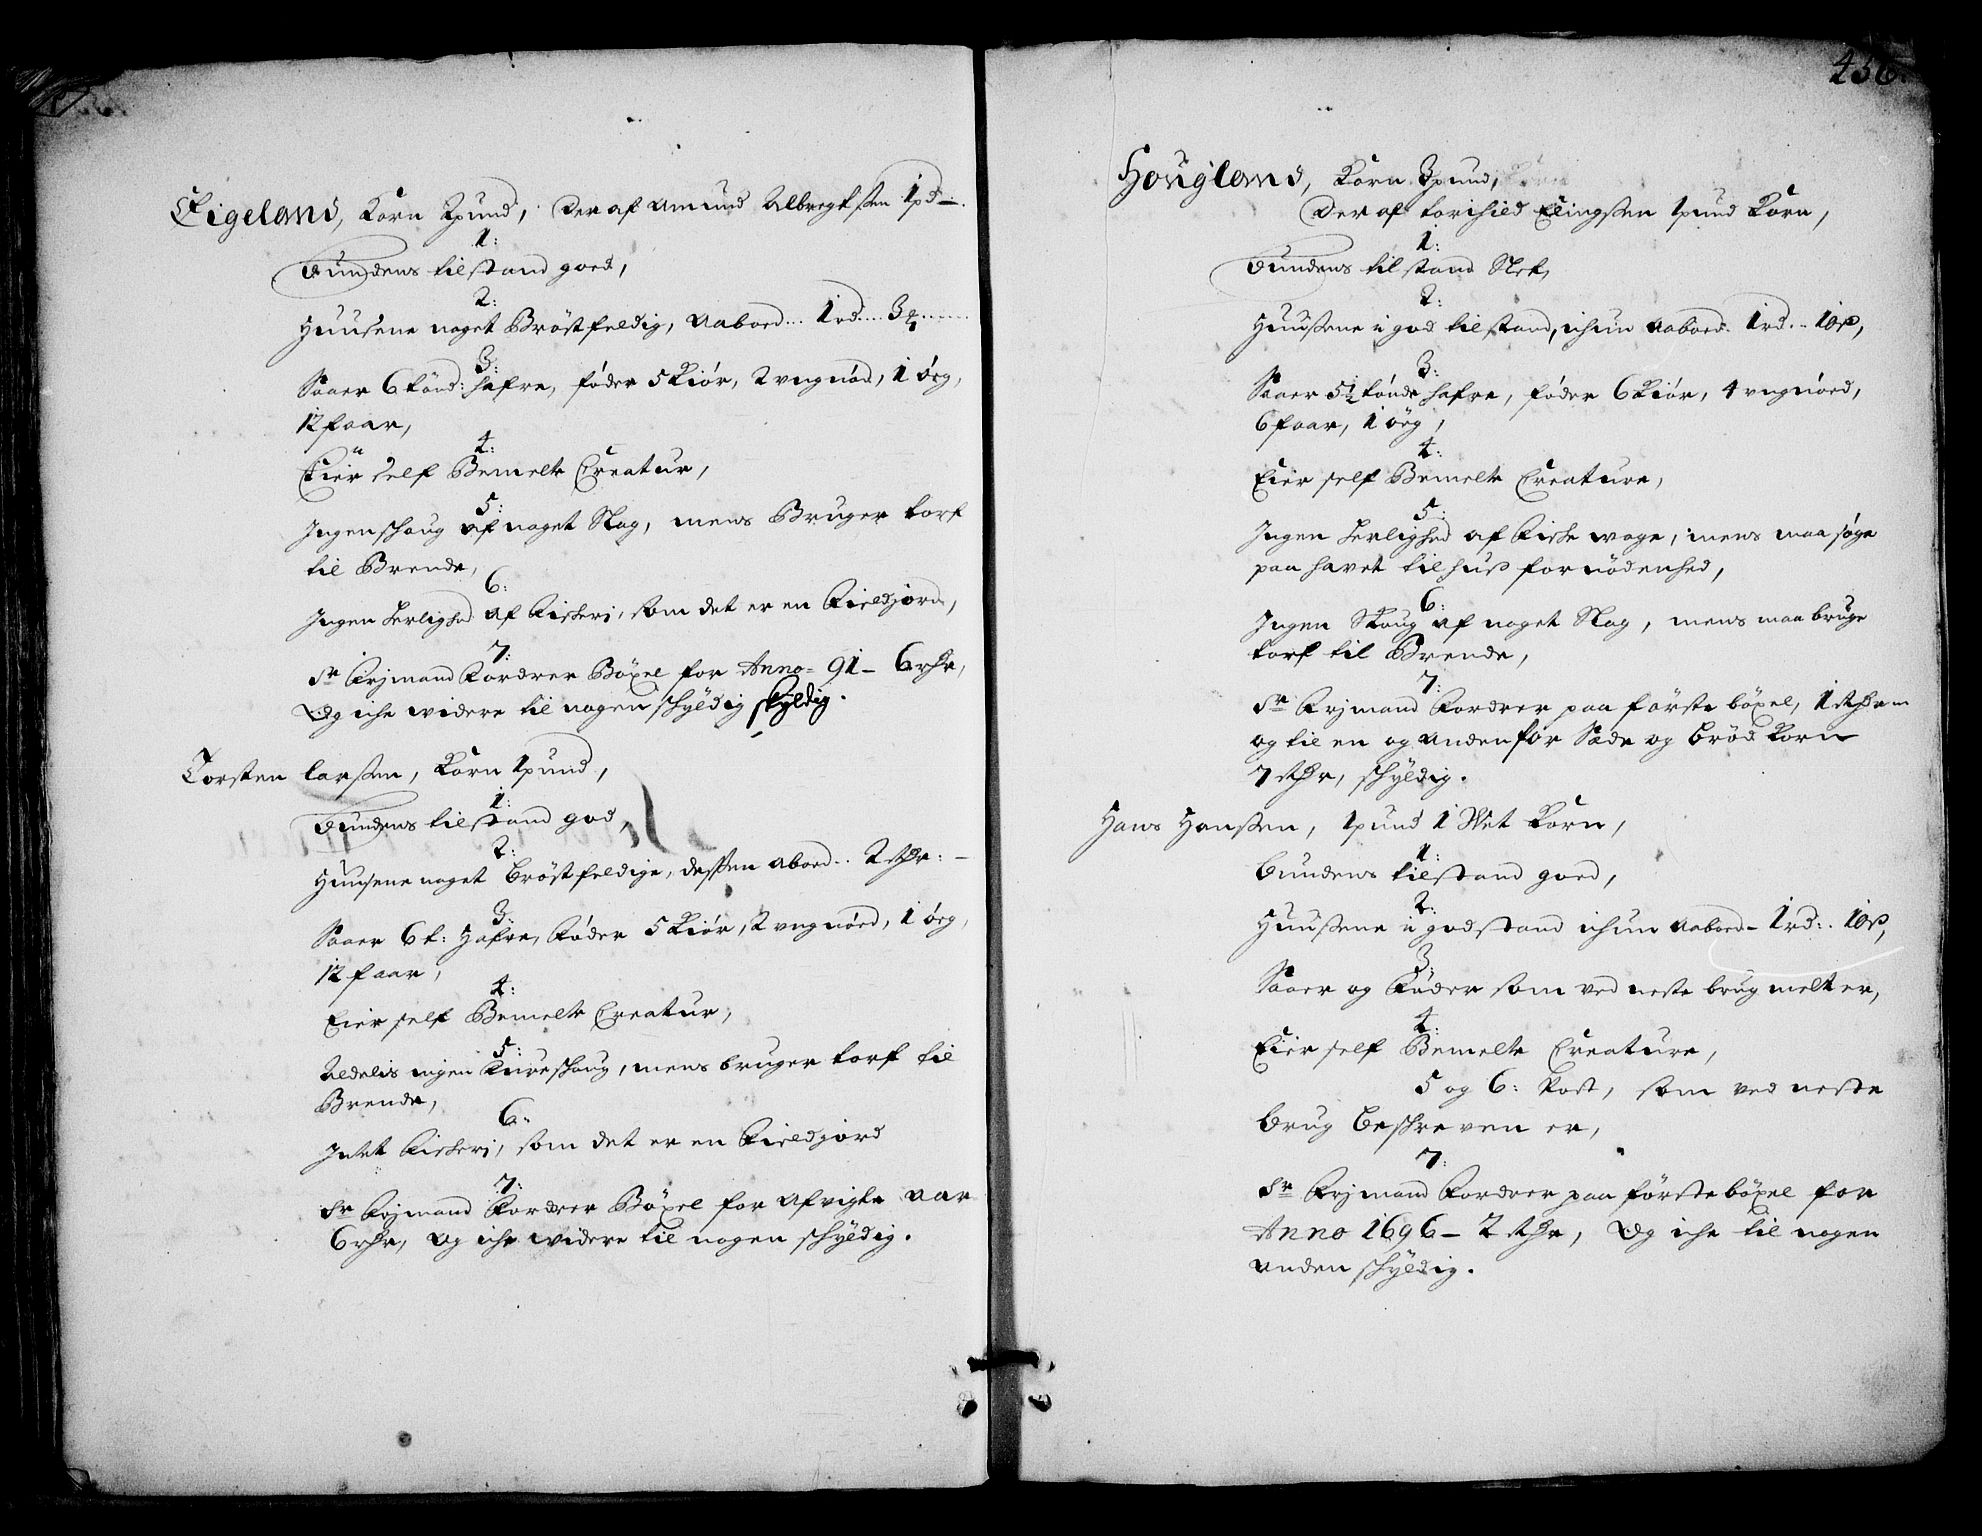 Eigeland, Korn 2pund, Der af Amund Albregtßen 1pd -
1:
Bundens tilstand goed,
2:
Huusene noget Bröstfeldig, Aaboed... 1rd....3 ...
3:
Saaer 6 tönd: hafre, föder 5 Kiör, 2 ungnöd, 1 ög,
12 faar,
4:
Eier self Bemelte Creatur,
5:
Ingen schoug af noget Slag, mens Bruger torf
til Brende,
6:
Ingen herlighed af Fischeri, som det er en Fieldjord,
7:
Sr Frjmand Fordrer Böxel for Anno- 91- 6 rdr,
Og iche widere til nogen schyldig skyldig.
Torsten larßen, Korn 1pund,
1:
Bundens tilstand god,
2:
Huusene noget bröstfeldige, deßen Aboed.. 2 rdr: -
3:
Saaer 6 t: Hafre, Föder 5 Kiör, 2 ungnöed, 1 ög,
12 faar,
4:
Eier self Bemelte Creatur,
5:
Aldelis ingen Fureschoug, mens bruger torf til
Brende,
6:
Intet Fischeri, som det er en Fieldjord
7:
Sr Frjmand Fordrer Böxel for Afvigte Aar
6 rdr, og iche widere til nogen schyldig.
456.
Hougland, Korn 3pund,
Der af torchild Elingßen 1pund Korn,
1:
Bundens tilstand Slet,
2:
Huußene i god tilstand, ichun Aaboed. 1rd... 1ort,
3:
Saaer 5½ tönde hafre, föder 6 Kiör, 4 ungnöed,
6 faar, 1 ög,
4:
Eier self Bemelte Creature,
5:
Ingen herlighed af Fische woge, mens maa söge
paa havet til huß fornödenhed,
6:
Ingen Skoug af noget Slag, mens maa bruge
torf til Brende,
7:
Sr Frjmand Fordrer paa förste böxel, 1 rdr
og til en og anden for Sæde og bröd Korn
7 rdr, schyldig.
Hans Hanßen, 1pund 1 Wet Korn,
1:
bundens tilstand goed,
2:
Huußene i god stand ichun Aaboed- 1rd:. 1ort,
3:
Saaer og Föder som ved neste brug melt er,
4:
Eier self Bemelte Creature,
5 og 6: Post, som ved neste
brug beschreven er,
7:
Sr Frjmand Fordrer paa förste böxel for
Anno 1696- 2 rdr, Og iche til nogen
anden schyldig.